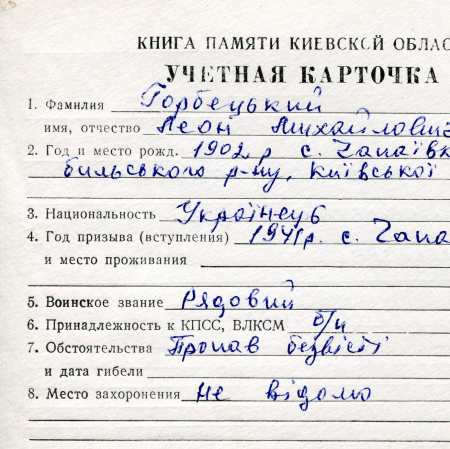 КНИГА ПАМЯТИ КИЕВСКОЙ ОБЛАС
УЧЕТНАЯ КАРТОЧКА
1. Фамилия Горбецький
имя, отчество Леон Михайлович
2. Год и место рожд. 1902 р с. Чапаївк
бильського р-ну, Київської
3. Национальность Українець
4. Год призыва (вступления) 1941р. с. Чапа
и место проживания
5. Воинское звание Рядовий
6. Принадлежность к КПСС, ВЛКСМ б/п
7. Обстоятельства Пропав безвісті
и дата гибели
8. Место захоронения не відомо